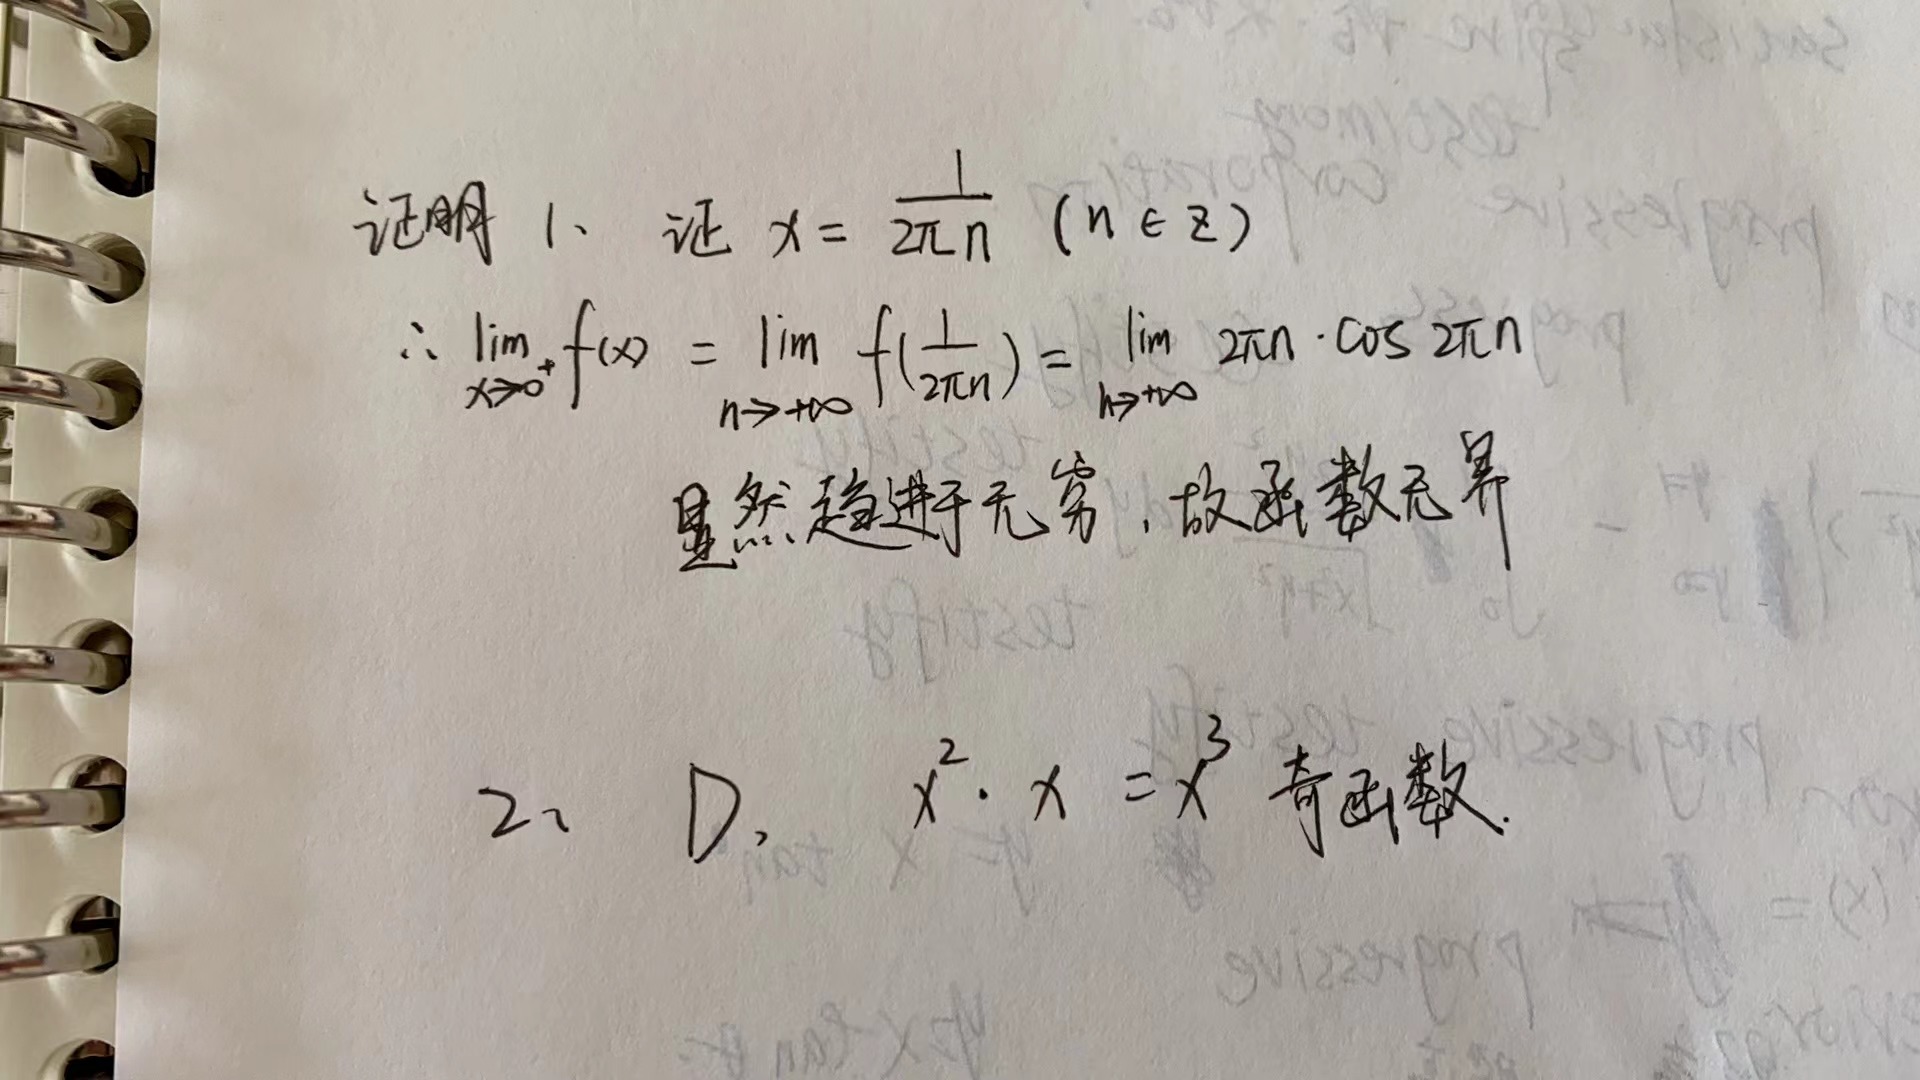 证明 1、 证 x = \frac{1}{2πn} (n ∈ Z)
∴ \lim_{x→0^+} f(x) = \lim_{n→+∞} f(\frac{1}{2πn}) = \lim_{n→+∞} 2πn · cos 2πn
显然趋进于无穷，故函数无界
2、 D、 x^2 · x = x^3 奇函数.